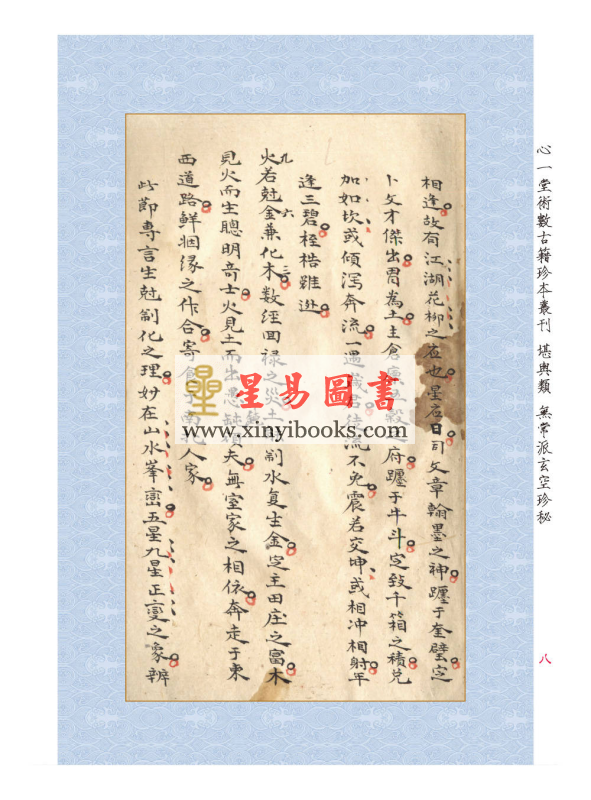 心一堂術數古籍珍本叢刊 堪輿類 無常派玄空珍秘
八
相逢故有江湖花柳之也星名日司文章翰墨之神躔于奎壁定
卜文才傑出胃為土主倉廩五穀之府躔于牛斗定致千箱之積兌
加如坎或傾瀉奔流一遇歲君徒流不免震若交坤或相冲相射年
逢三碧桎梏難逃
九 六 三
火若尅金兼化木數經回祿之災土制水复生金定主田庄之富木
見火而生聰明奇士火見土而出愚鈍頑夫無室家之相依奔走于東
西道路鮮姻緣之作合寄食于南北人家
此節專言生尅制化之理妙在山水峯巒五星九星正變之象辨
星易圖書
www.xinyibooks.com